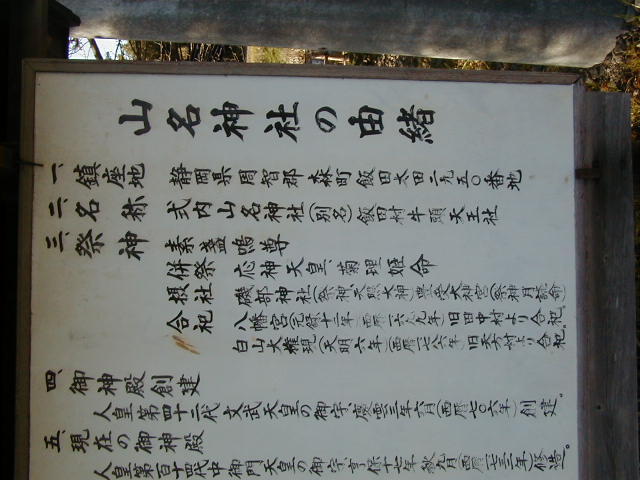 山名神社の由緒
一、鎮座地 静岡県周智郡森町飯田太田二九五〇番地
二、名称 式内山名神社（別名）飯田村牛頭天王社
三、祭神 素盞嗚尊
併祭 応神天皇、菊理姫命
摂社 磯部神社（祭神、天照大神）豊受大神宮（祭神月読命）
合祀 八幡宮（元禄十二年）（西暦一六九九年）旧田中村より合祀。
白山大権現（天明六年）（西暦一七八六年）旧天方村より合祀。
四、御神殿創建
人皇第四十二代文武天皇の御宇、慶雲三年六月（西暦七〇六年）創建。
五、現在の御神殿
人皇第百十四代中御門天皇の御宇、享保十七年 九月（西暦一七三二年）修造。